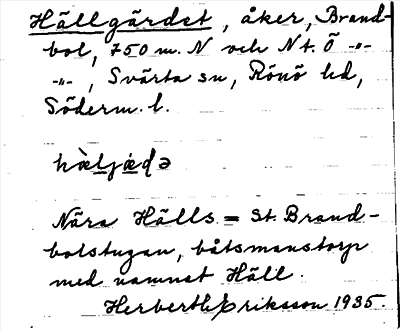 Hällgärdet, åker, Brand-
bol, 750 m. N och N t. Ö -"-
-"-, Svärta sn, Rönö hd,
Söderm. l.
häljädə
Nära Hälls = St. Brand-
bolstugan, båtsmanstorp
med namnet Häll.
Herberth Eriksson 1935